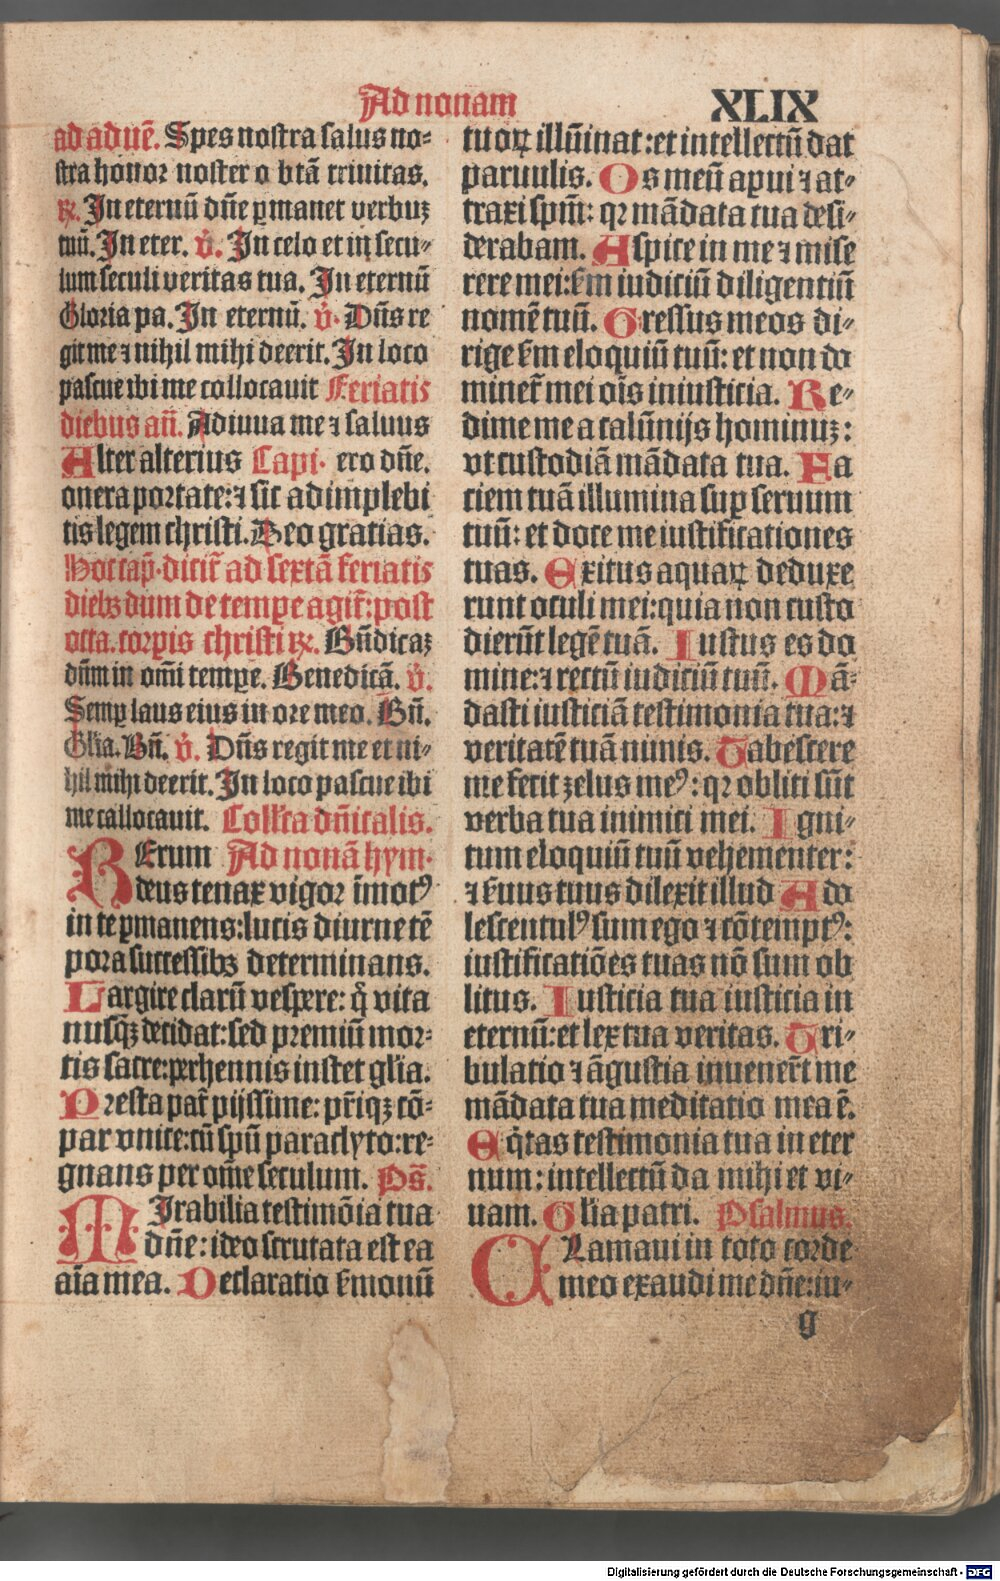 Ad nonam
XLIX
ad aduē. Spes nostra salus no⸗
stra honor noster o btā trinitas.
℟. In eternū dn̄e ꝑmanet verbuꝫ
tuū. In eter. ℣. In celo et in secu⸗
lum seculi veritas tua. In eternū
Gloria pa. In eternū. ℣. Dn̄s re
git me ⁊ nihil mihi deerit. In loco
pascue ibi me collocauit Feriatis
diebus an̄. Adiuua me ⁊ saluus
Alter alterius Capi. ero dn̄e.
onera portate: ⁊ sic adimplebi
tis legem christi. Deo gratias.
Hoc cap̄. dicit̄ ad sextā feriatis
diebꝫ dum de tempe agit̄: post
octa. corꝑis christi ℟. Bn̄dicaꝫ
dn̄m in om̄i tempe. Benedicā. ℣.
Semꝑ laus eius in ore meo. Bn̄.
Gl̄ia. Bn̄. ℣. Dn̄s regit me et ni⸗
hil mihi deerit. In loco pascue ibi
me callocauit. Coll̄cta dn̄icalis.
RErum Ad nonā hym.
deus tenax vigor īmotꝰ
in te ꝑmanens: lucis diurne tē
pora successibꝫ determinans.
Largire clarū vespere: q̄ vita
nusqꝫ decidat: sed premiū mor⸗
tis sacre: perhennis instet gl̄ia.
Presta pat̄ pijssime: pr̄iqꝫ cō⸗
par vnice: cū spū paraclyto: re⸗
gnans per om̄e seculum. Ps̄.
MIrabilia testimōia tua
dn̄e: ideo scrutata est ea
aīa mea. Declaratio ẜmonū
tuoꝝ illūinat: et intellectū dat
paruulis. Os meū aꝑui ⁊ at⸗
traxi spm̄: qꝛ mādata tua desi⸗
derabam. Aspice in me ⁊ mise
rere mei: ẜm iudiciū diligentiū
nomē tuū. Gressus meos di⸗
rige ẜm eloquiū tuū: et non do
minet̄ mei oīs iniusticia. Re⸗
dime me a calūnijs hominuꝫ:
vt custodiā mādata tua. Fa
ciem tuā illumina suꝑ seruum
tuū: et doce me iustificationes
tuas. Exitus aquaꝝ deduxe
runt oculi mei: quia non custo
dierūt legē tuā. Iustus es do
mine: ⁊ rectū iudiciū tuū. Mā⸗
dasti iusticiā testimonia tua: ⁊
veritatē tuā nimis. Tabescere
me fecit zelus meꝰ: qꝛ obliti sūt
verba tua inimici mei. Igni⸗
tum eloquiū tuū vehementer:
⁊ ẜuus tuus dilexit illud Ado
lescentulꝰ sum ego ⁊ cōtemptꝰ:
iustificatiōes tuas nō sum ob
litus. Iusticia tua iusticia in
eternū: et lex tua veritas. Tri⸗
bulatio ⁊ āgustia inuener̄t me
mādata tua meditatio mea ē.
Eq̄tas testimonia tua in eter
num: intellectū da mihi et vi⸗
uam. Gl̄ia patri. Psalmus.
CLamaui in toto corde
meo exaudi me dn̄e: iu⸗
g
Digitalisierung gefördert durch die Deutsche Forschungsgemeinschaft - DFG